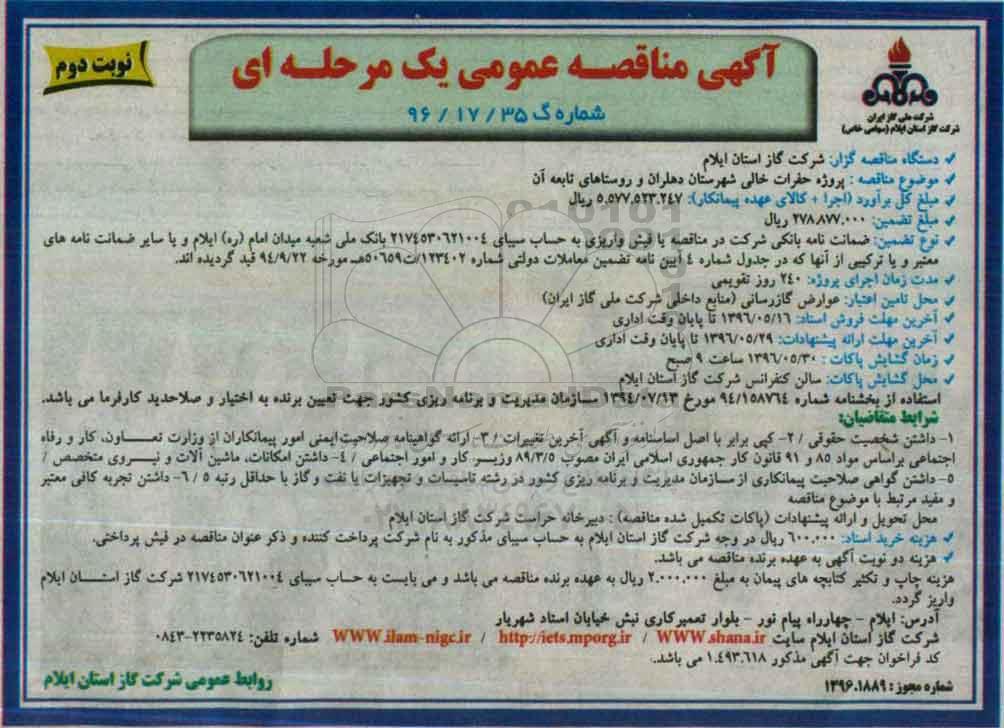 نوبت دوم
آگهی مناقصه عمومی یک مرحله ای
شماره گ ۳۵ / ۱۷ / ۹۶
شرکت ملی گاز ایران
شرکت گاز استان ایلام (سهامی خاص)
✓ دستگاه مناقصه گزار: شرکت گاز استان ایلام
✓ موضوع مناقصه : پروژه حفرات خالی شهرستان دهلران و روستاهای تابعه آن
✓ مبلغ کل برآورد (اجرا + کالای عهده پیمانکار): ۵.۵۷۷.۵۲۳.۲۴۷ ریال
✓ مبلغ تضمین: ۲۷۸.۸۷۷.۰۰۰ ریال
✓ نوع تضمین: ضمانت نامه بانکی شرکت در مناقصه یا فیش واریزی به حساب سیبای ۲۱۷٤٥۳۰٦۲۱۰۰٤ بانک ملی شعبه میدان امام (ره) ایلام و یا سایر ضمانت نامه های
معتبر و یا ترکیبی از آنها که در جدول شماره ٤ آیین نامه تضمین معاملات دولتی شماره ۱۲۳٤۰۲/ت۵۰٦۵۹هـ مورخه ۹٤/۹/۲۲ قید گردیده اند.
✓ مدت زمان اجرای پروژه: ۲٤۰ روز تقویمی
✓ محل تامین اعتبار: عوارض گازرسانی (منابع داخلی شرکت ملی گاز ایران)
✓ آخرین مهلت فروش اسناد: ۱۳۹٦/۰۵/۱٦ تا پایان وقت اداری
✓ آخرین مهلت ارائه پیشنهادات: ۱۳۹٦/۰۵/۲۹ تا پایان وقت اداری
✓ زمان گشایش پاکات : ۱۳۹٦/۰۵/۳۰ ساعت ۹ صبح
✓ محل گشایش پاکات: سالن کنفرانس شرکت گاز استان ایلام
استفاده از بخشنامه شماره ۹٤/۱۵۸۷٦٤ مورخ ۱۳۹٤/۰۷/۱۳ سازمان مدیریت و برنامه ریزی کشور جهت تعیین برنده به اختیار و صلاحدید کارفرما می باشد.
شرایط متقاضیان:
۱- داشتن شخصیت حقوقی / ۲- کپی برابر با اصل اساسنامه و آگهی آخرین تغییرات / ۳- ارائه گواهینامه صلاحیت ایمنی امور پیمانکاران از وزارت تعـــاون، کار و رفاه
اجتماعی براساس مواد ۸۵ و ۹۱ قانون کار جمهوری اسلامی ایران مصوب ۸۹/۳/۵ وزیـر کار و امور اجتماعی / ٤- داشتن امکانات، ماشین آلات و نیــروی متخصص /
۵- داشتن گواهی صلاحیت پیمانکاری از سازمان مدیریت و برنامه ریزی کشور در رشته تاسیسات و تجهیزات یا نفت و گاز با حداقل رتبه ۵ / ٦- داشتن تجربه کافی معتبر
و مفید مرتبط با موضوع مناقصه
محل تحویل و ارائه پیشنهادات (پاکات تکمیل شده مناقصه) : دبیرخانه حراست شرکت گاز استان ایلام
✓ هزینه خرید اسناد: ٦۰۰.۰۰۰ ریال در وجه شرکت گاز استان ایلام به حساب سیبای مذکور به نام شرکت پرداخت کننده و ذکر عنوان مناقصه در فیش پرداختی.
✓ هزینه دو نوبت آگهی به عهده برنده مناقصه می باشد.
هزینه چاپ و تکثیر کتابچه های پیمان به مبلغ ۲.۰۰۰.۰۰۰ ریال به عهده برنده مناقصه می باشد و می بایست به حساب سیبای ۲۱۷٤۵۳۰٦۲۱۰۰٤ شرکت گاز استـــان ایلام
واریز گردد.
آدرس: ایلام - چهارراه پیام نور - بلوار تعمیرکاری نبش خیابان استاد شهریار
شرکت گاز استان ایلام سایت WWW.shana.ir / http://iets.mporg.ir / WWW.ilam-nigc.ir شماره تلفن: ۲۲۳۵۸۲٤-۰۸٤۳
کد فراخوان جهت آگهی مذکور ۱.٤۹۳.٦۱۸ می باشد.
شماره مجوز : ۱۳۹٦.۱۸۸۹
روابط عمومی شرکت گاز استان ایلام